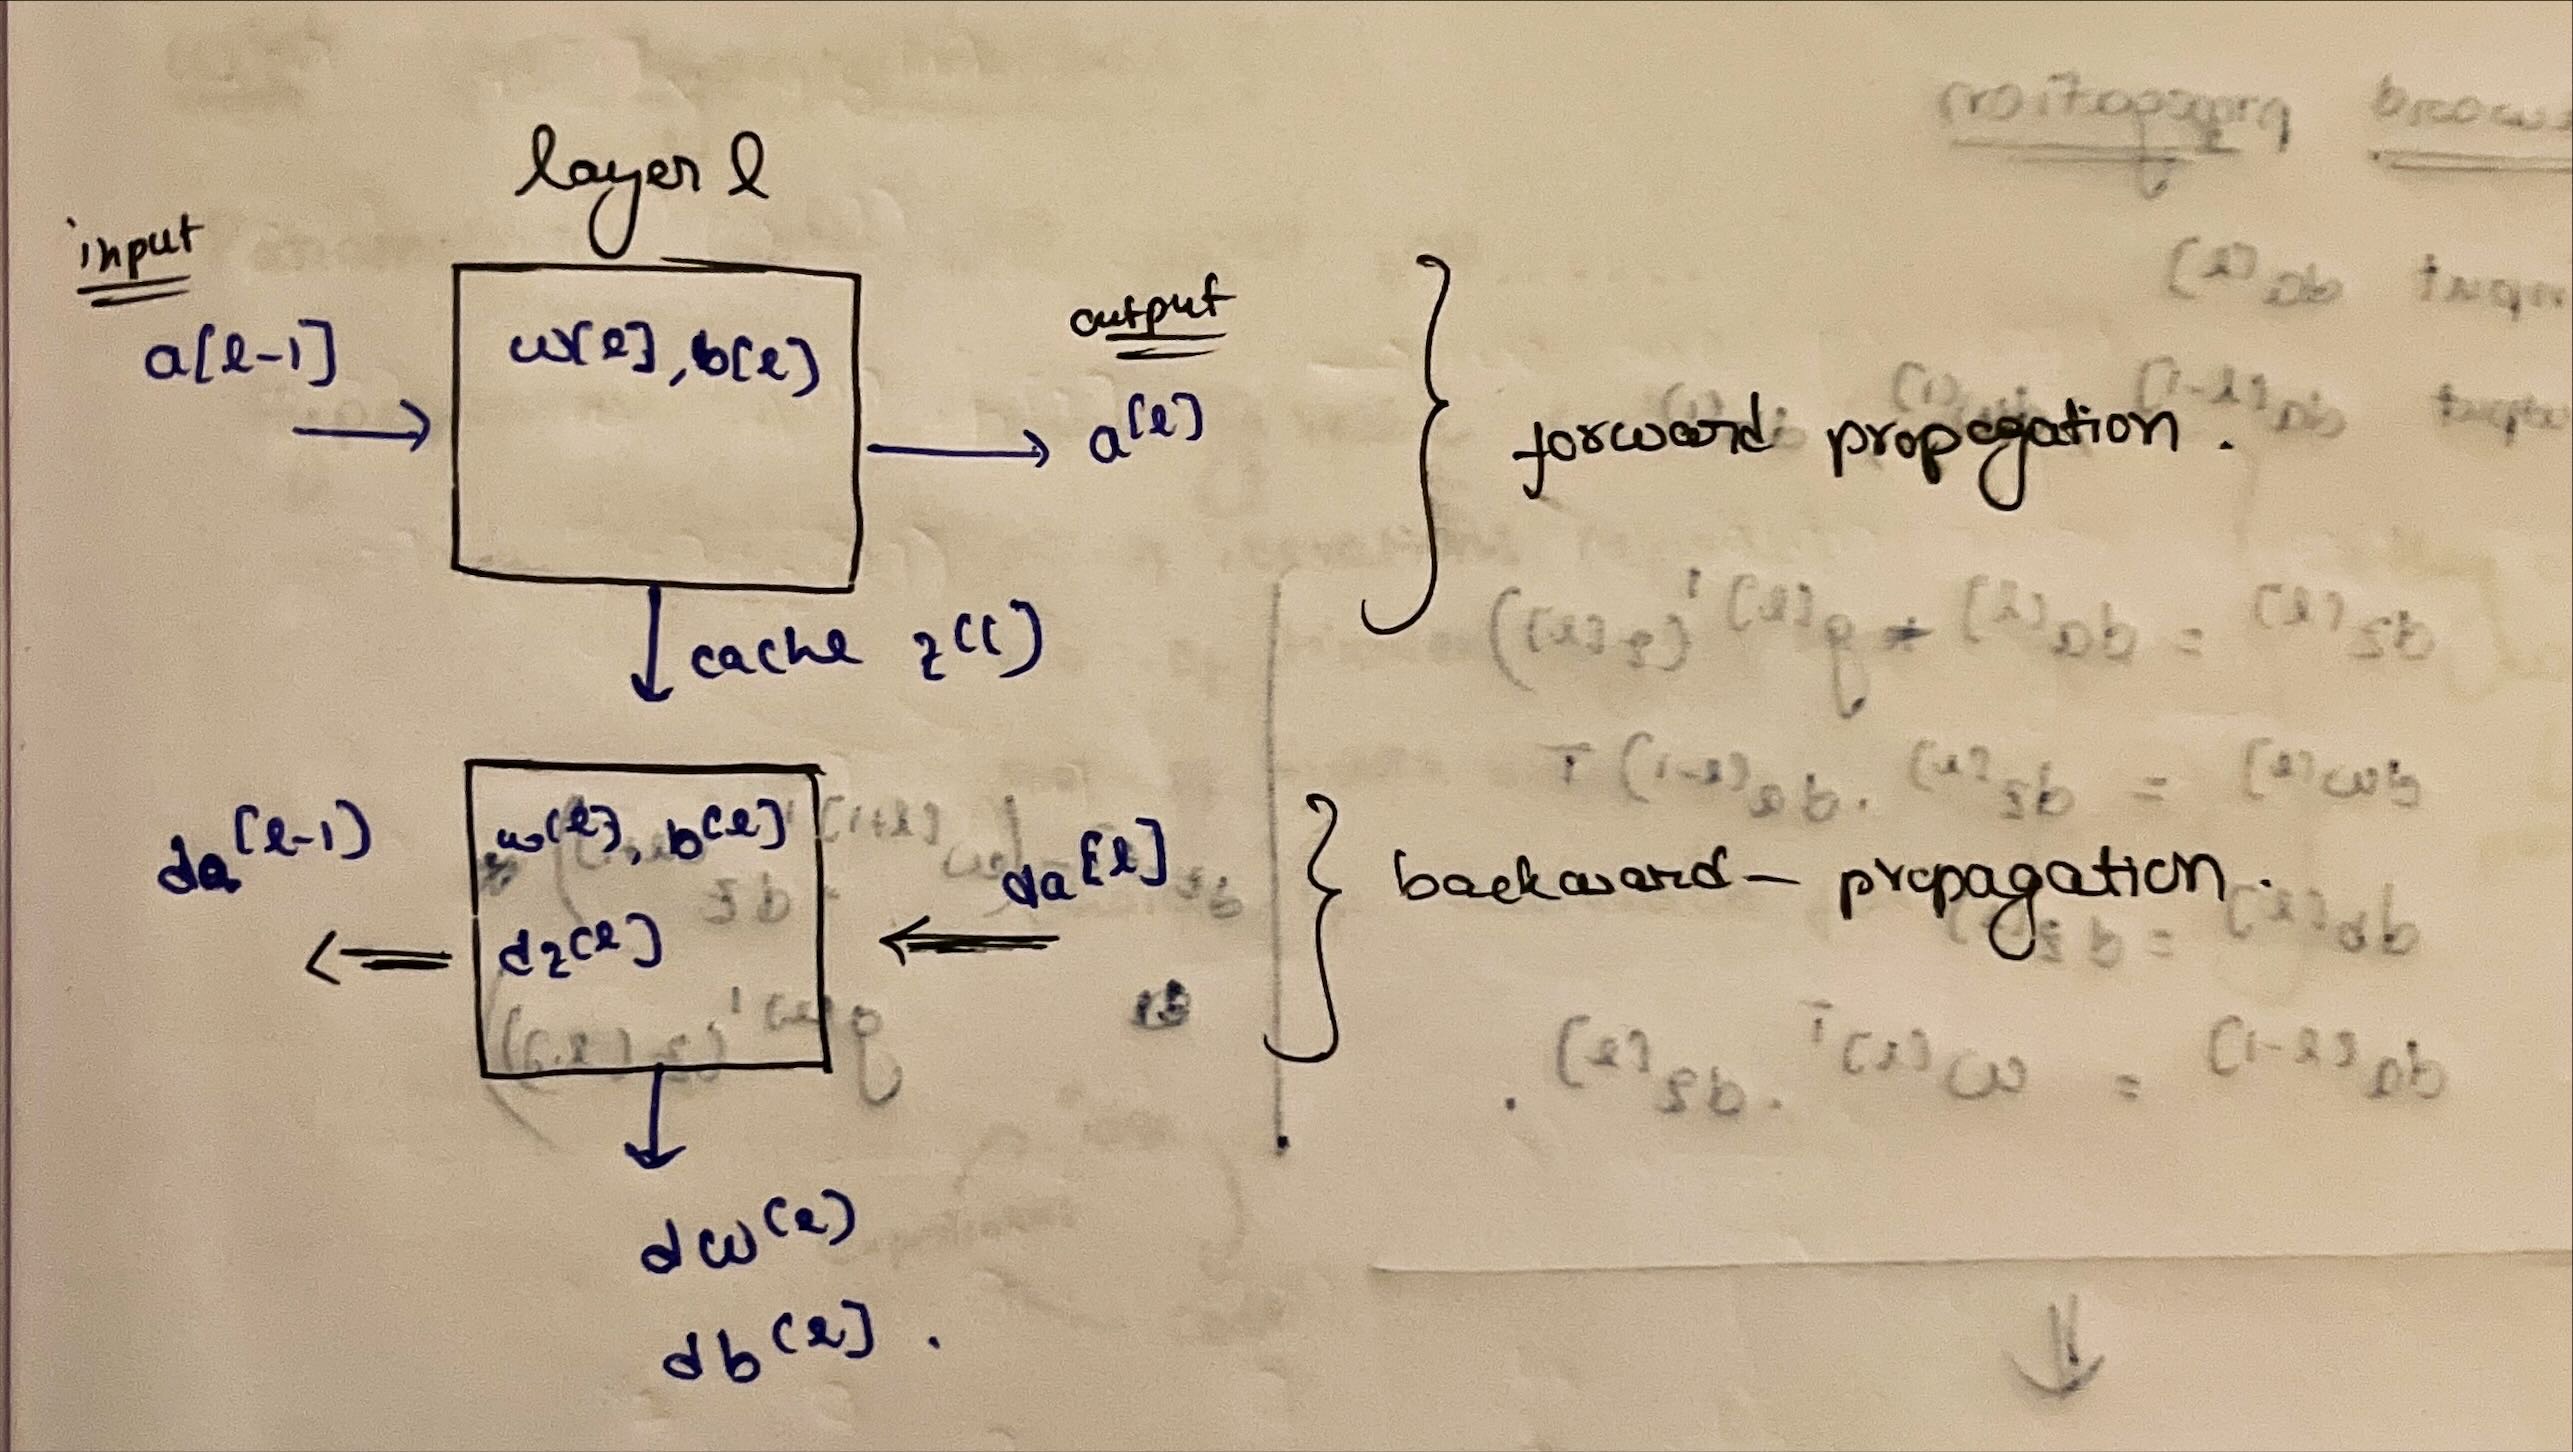 layer l
input
a[l-1]
w[l], b[l]
output
a[l]
forward propagation.
cache z(l)
da[l-1]
w[l], b[l]
dz[l]
da[l]
backward - propagation.
dw[l]
db[l].